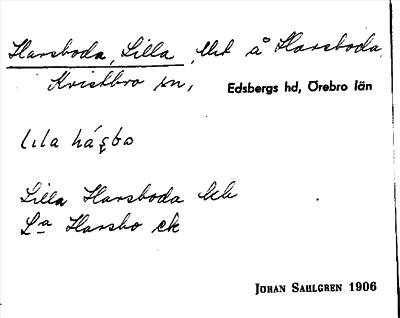 Harsboda, Lilla, Ut å Harsboda
Kvistbro sn,
Edsbergs hd, Örebro län
lıla há̱ṣbo
Lilla Harsboda
Lª Harsbo ek
JÖRAN SAHLGREN 1906